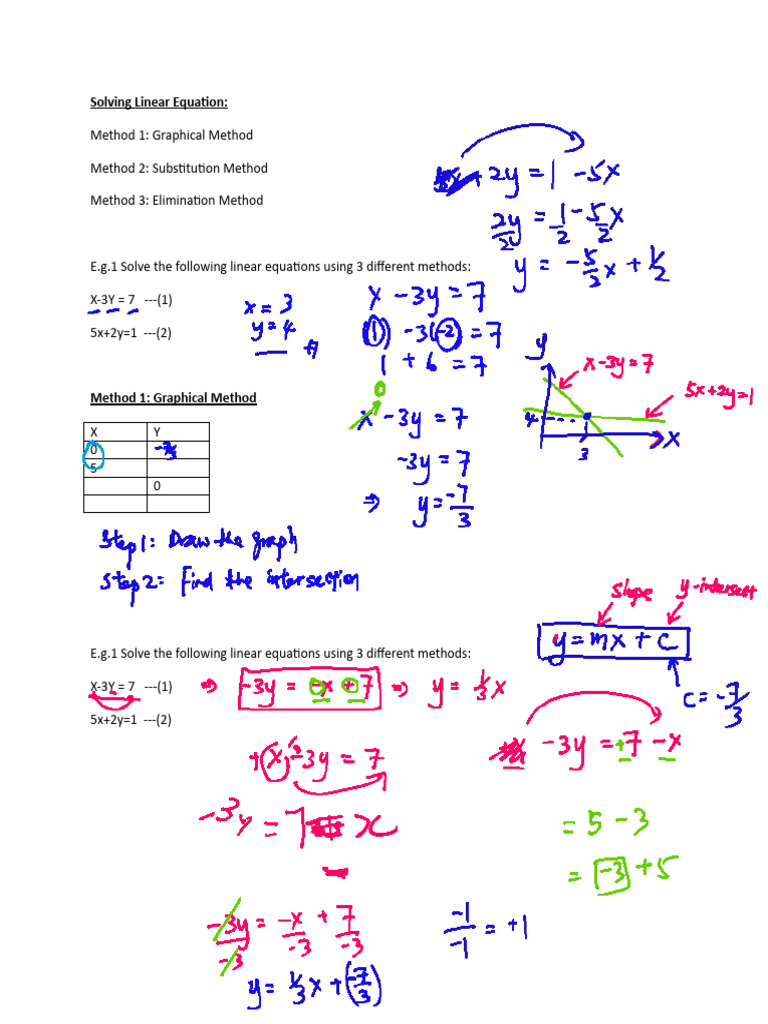 Solving Linear Equation:
Method 1: Graphical Method
Method 2: Substitution Method
Method 3: Elimination Method
+ 2y = 1 -5x
2y/2 = 1/2 - 5/2 x
y = -5/2 x + 1/2
E.g.1 Solve the following linear equations using 3 different methods:
X-3Y = 7 ---(1)
5x+2y=1 ---(2)
x = 3
y = 4
x - 3y = 7
(1) -3(-2) = 7
1 + 6 = 7
Method 1: Graphical Method
X Y
0 -7/3
5
0
0
x - 3y = 7
-3y = 7
⇒ y = -7/3
y
x - 3y = 7
5x + 2y = 1
4
3
x
Step 1: Draw the graph
Step 2: Find the intersection
slope y-intersect
y = mx + c
c = -7/3
E.g.1 Solve the following linear equations using 3 different methods:
X-3Y = 7 ---(1) ⇒ -3y = -x + 7 ⇒ y = 1/3 x
5x+2y=1 ---(2)
+x - 3y = 7
-3y = 7 x
-
-3y = +7 -x
= 5 - 3
= -3 + 5
-3y/-3 = -x/-3 + 7/-3
y = 1/3 x + (-7/3)
-1/-1 = +1